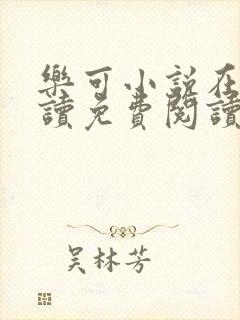 樂可小說在
讀免費閱讀
吴林芳